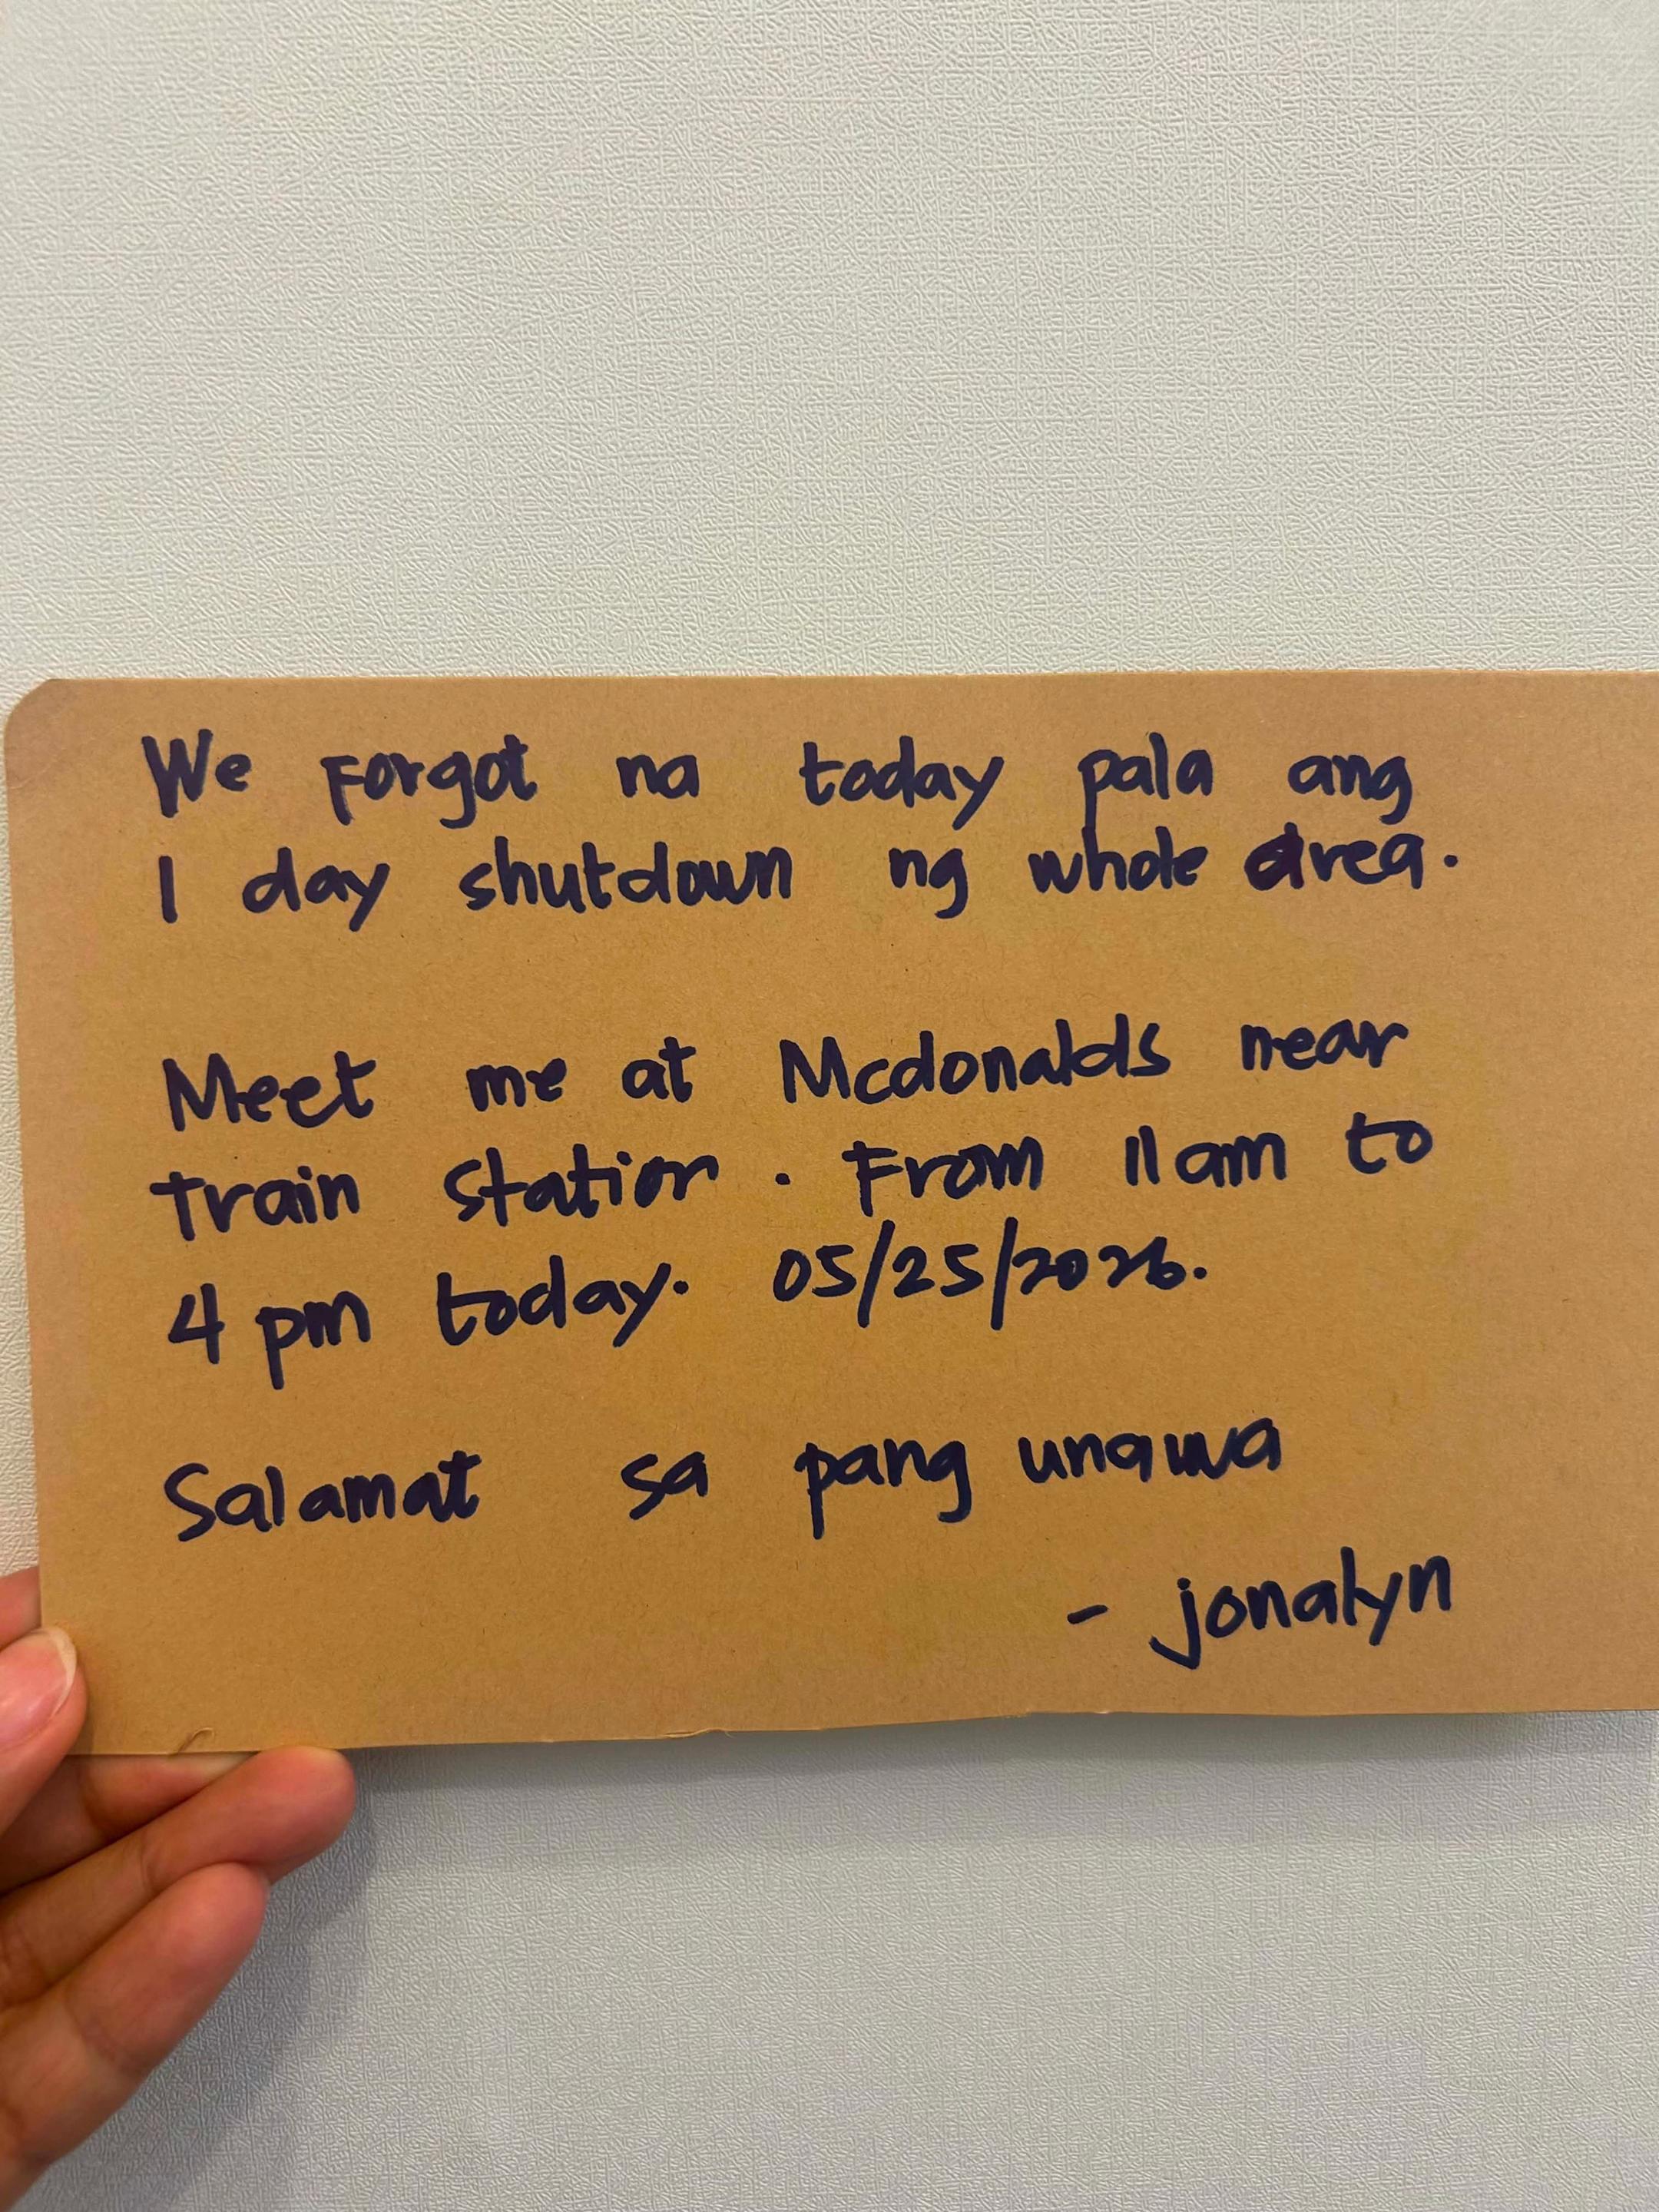 We Forgot na today pala ang
1 day shutdown ng whole area.
Meet me at Mcdonalds near
train station. From 11am to
4 pm today. 05/25/2026.
Salamat sa pang unawa
- jonalyn